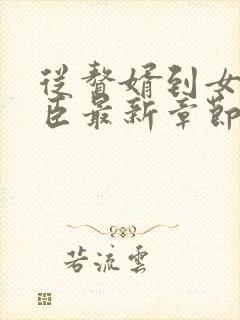 從贅婿到女
臣最新章節
若流雲